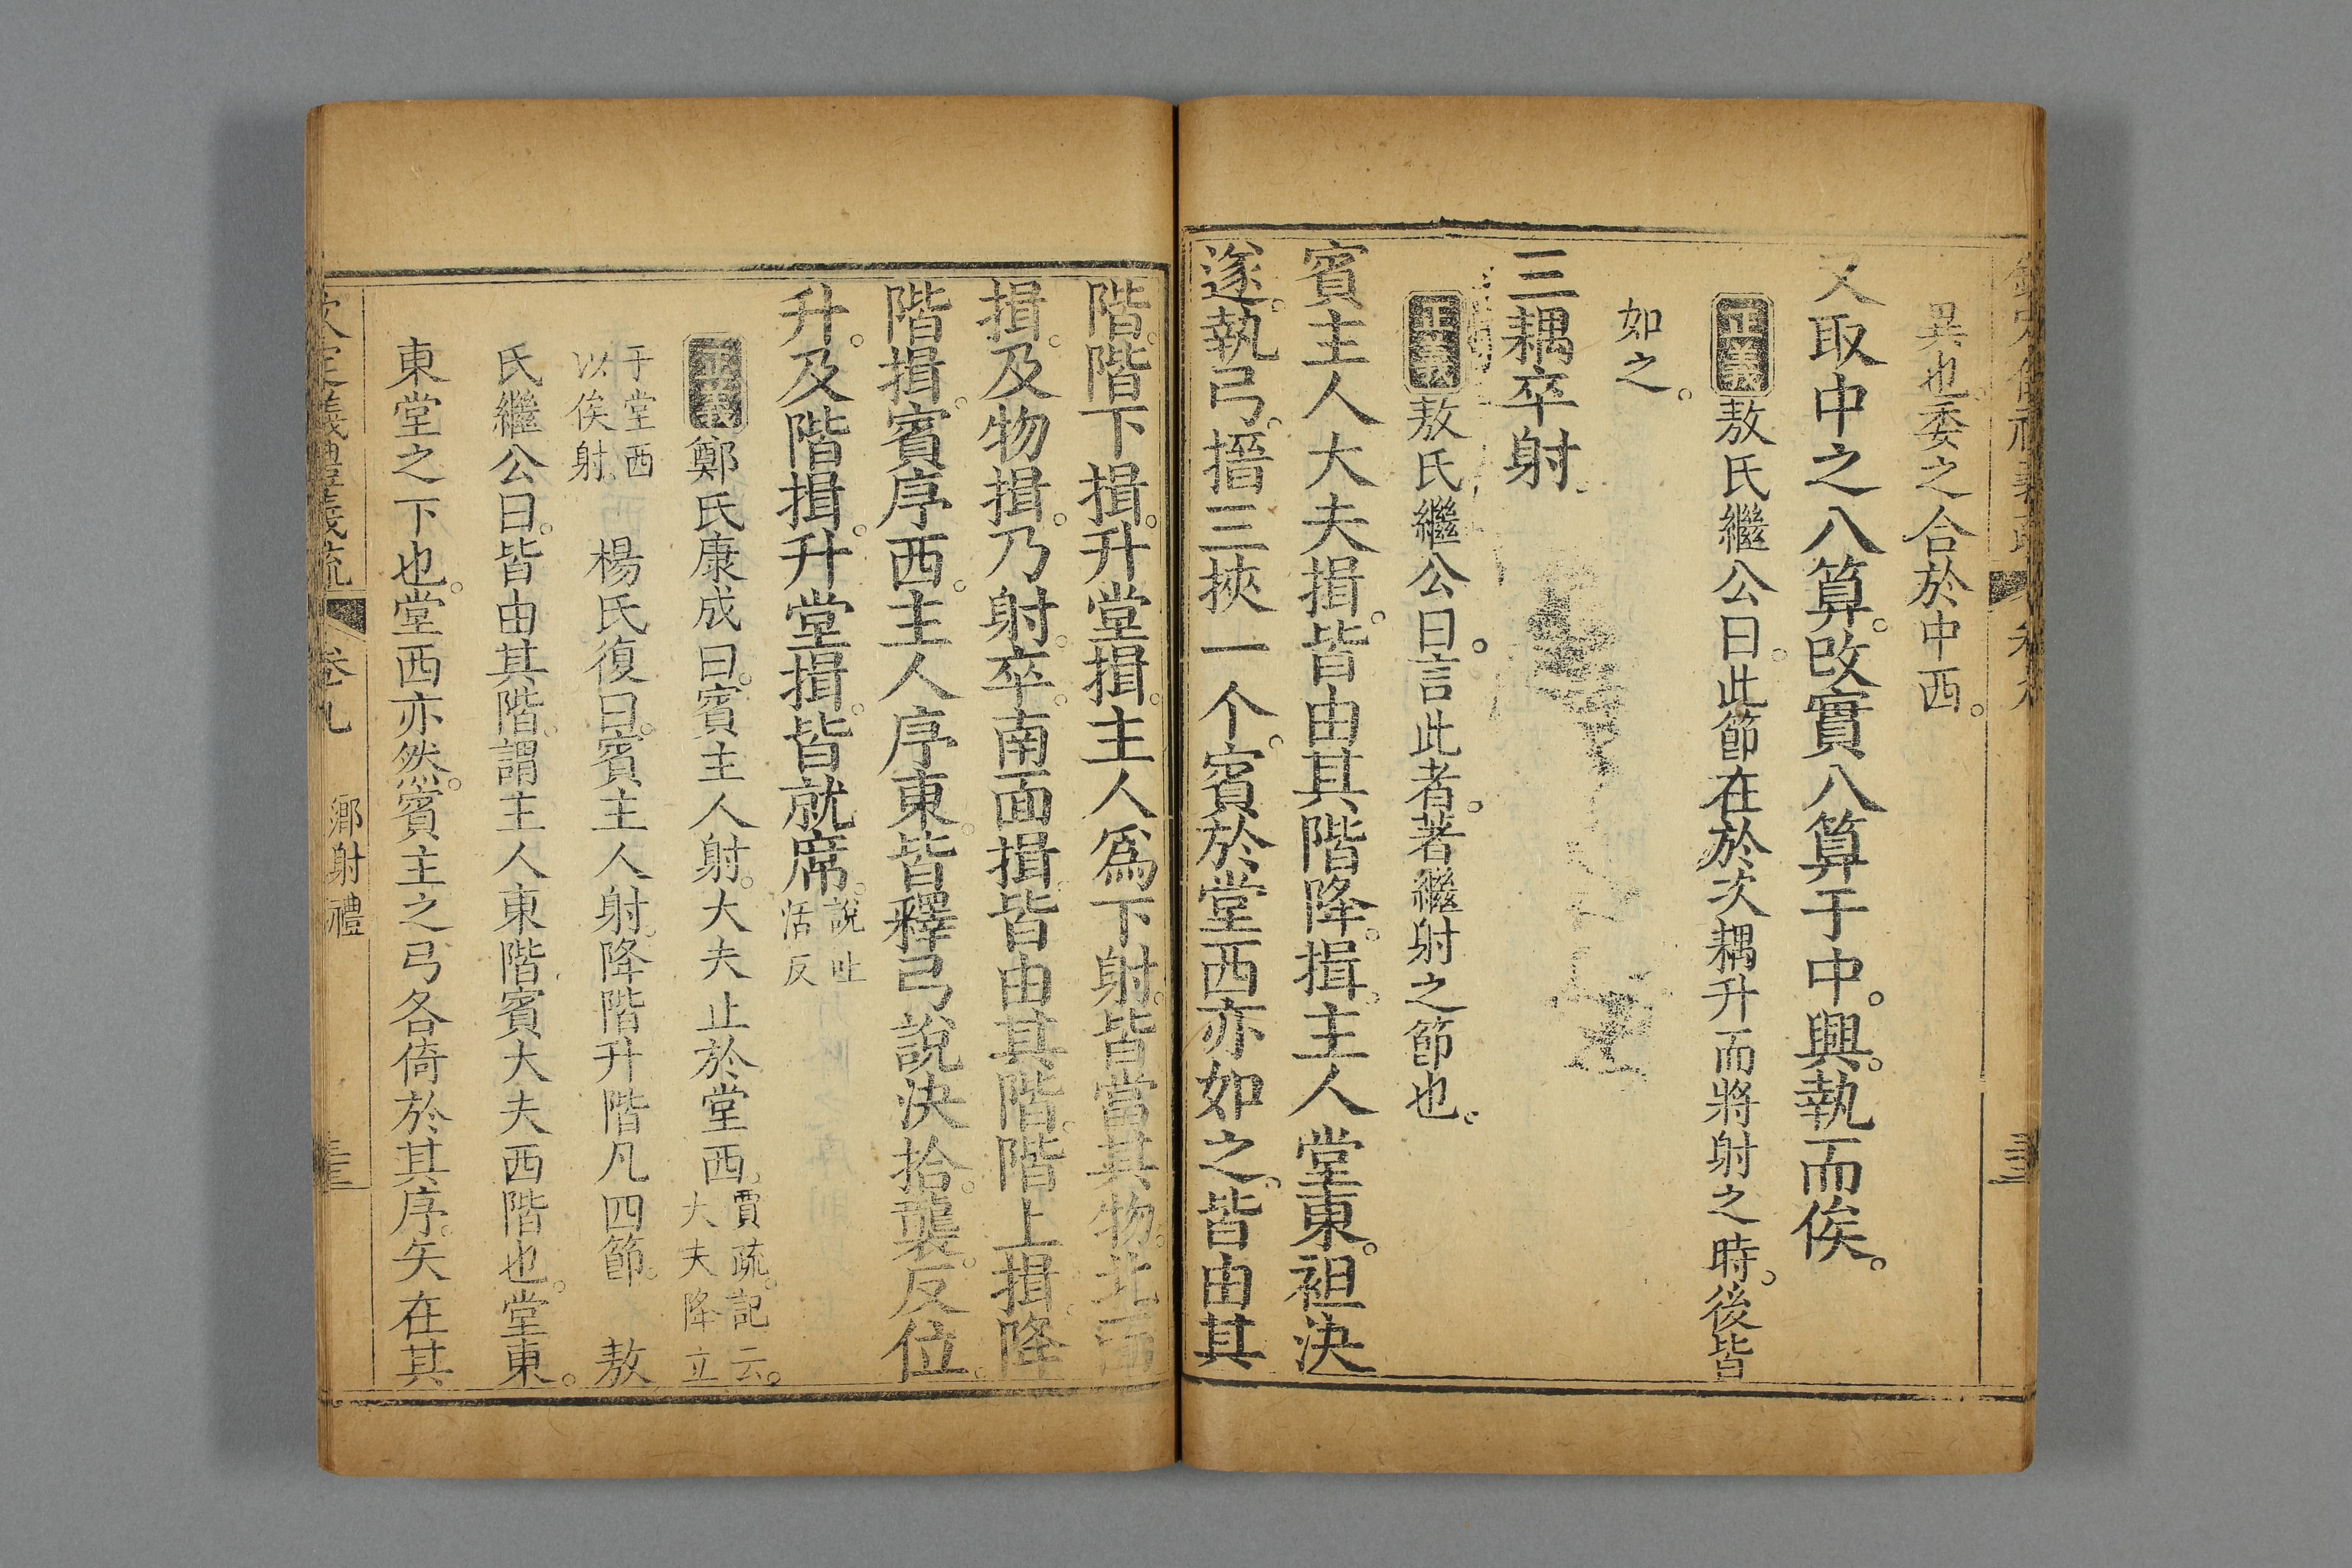 異也。委之合於中西。
又取中之八算。改實八算于中。興。執而俟。
正義敖氏繼公曰。此節在於次耦升而將射之時。後皆
如之。
三耦卒射。
正義敖氏繼公曰。言此者。著繼射之節也。
賓主人大夫揖。皆由其階降。揖。主人堂東。袒決
遂。執弓。搢三挾一个。賓於堂西亦如之。皆由其
階。階下揖。升堂揖。主人爲下射。皆當其物。北面
揖。及物揖。乃射。卒。南面揖。皆由其階。階上揖。降
階揖。賓序西。主人序東。皆釋弓說決拾。襲。反位。
升。及階揖。升堂揖。皆就席。說吐活反
正義鄭氏康成曰。賓主人射。大夫止於堂西。賈疏。記云。大夫降立
于堂西以俟射。 楊氏復曰。賓主人射。降階升階凡四節。 敖
氏繼公曰。皆由其階。謂主人東階。賓大夫西階也。堂東。
東堂之下也。堂西亦然。賓主之弓各倚於其序。矢在其
欽定儀禮義疏 卷九 鄉射禮